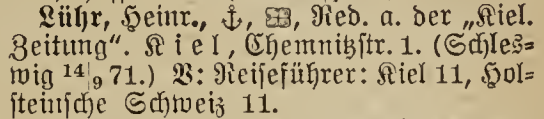 Lühr, Heinr., ⚓, ⌸, Red. a. der „Kiel.
Zeitung“. Kiel, Chemnitzstr. 1. (Schles=
wig 14|9 71.) V: Reiseführer: Kiel 11, Hol=
steinische Schweiz 11.